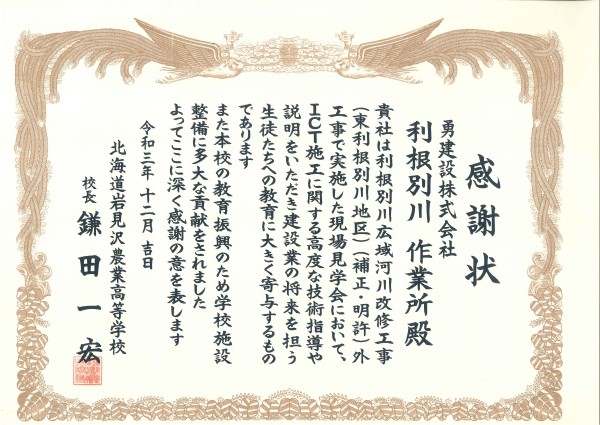 感謝状
勇建設株式会社
利根別川 作業所殿
貴社は利根別川広域河川改修工事
(東利根別川地区)(補正・明許)外
工事で実施した現場見学会において、
ICT施工に関する高度な技術指導や
説明をいただき建設業の将来を担う
生徒たちへの教育に大きく寄与するもの
であります
また本校の教育振興のため学校施設
整備に多大な貢献をされました
よってここに深く感謝の意を表します
令和三年 十二月 吉日
北海道岩見沢農業高等学校
校長 鎌田一宏